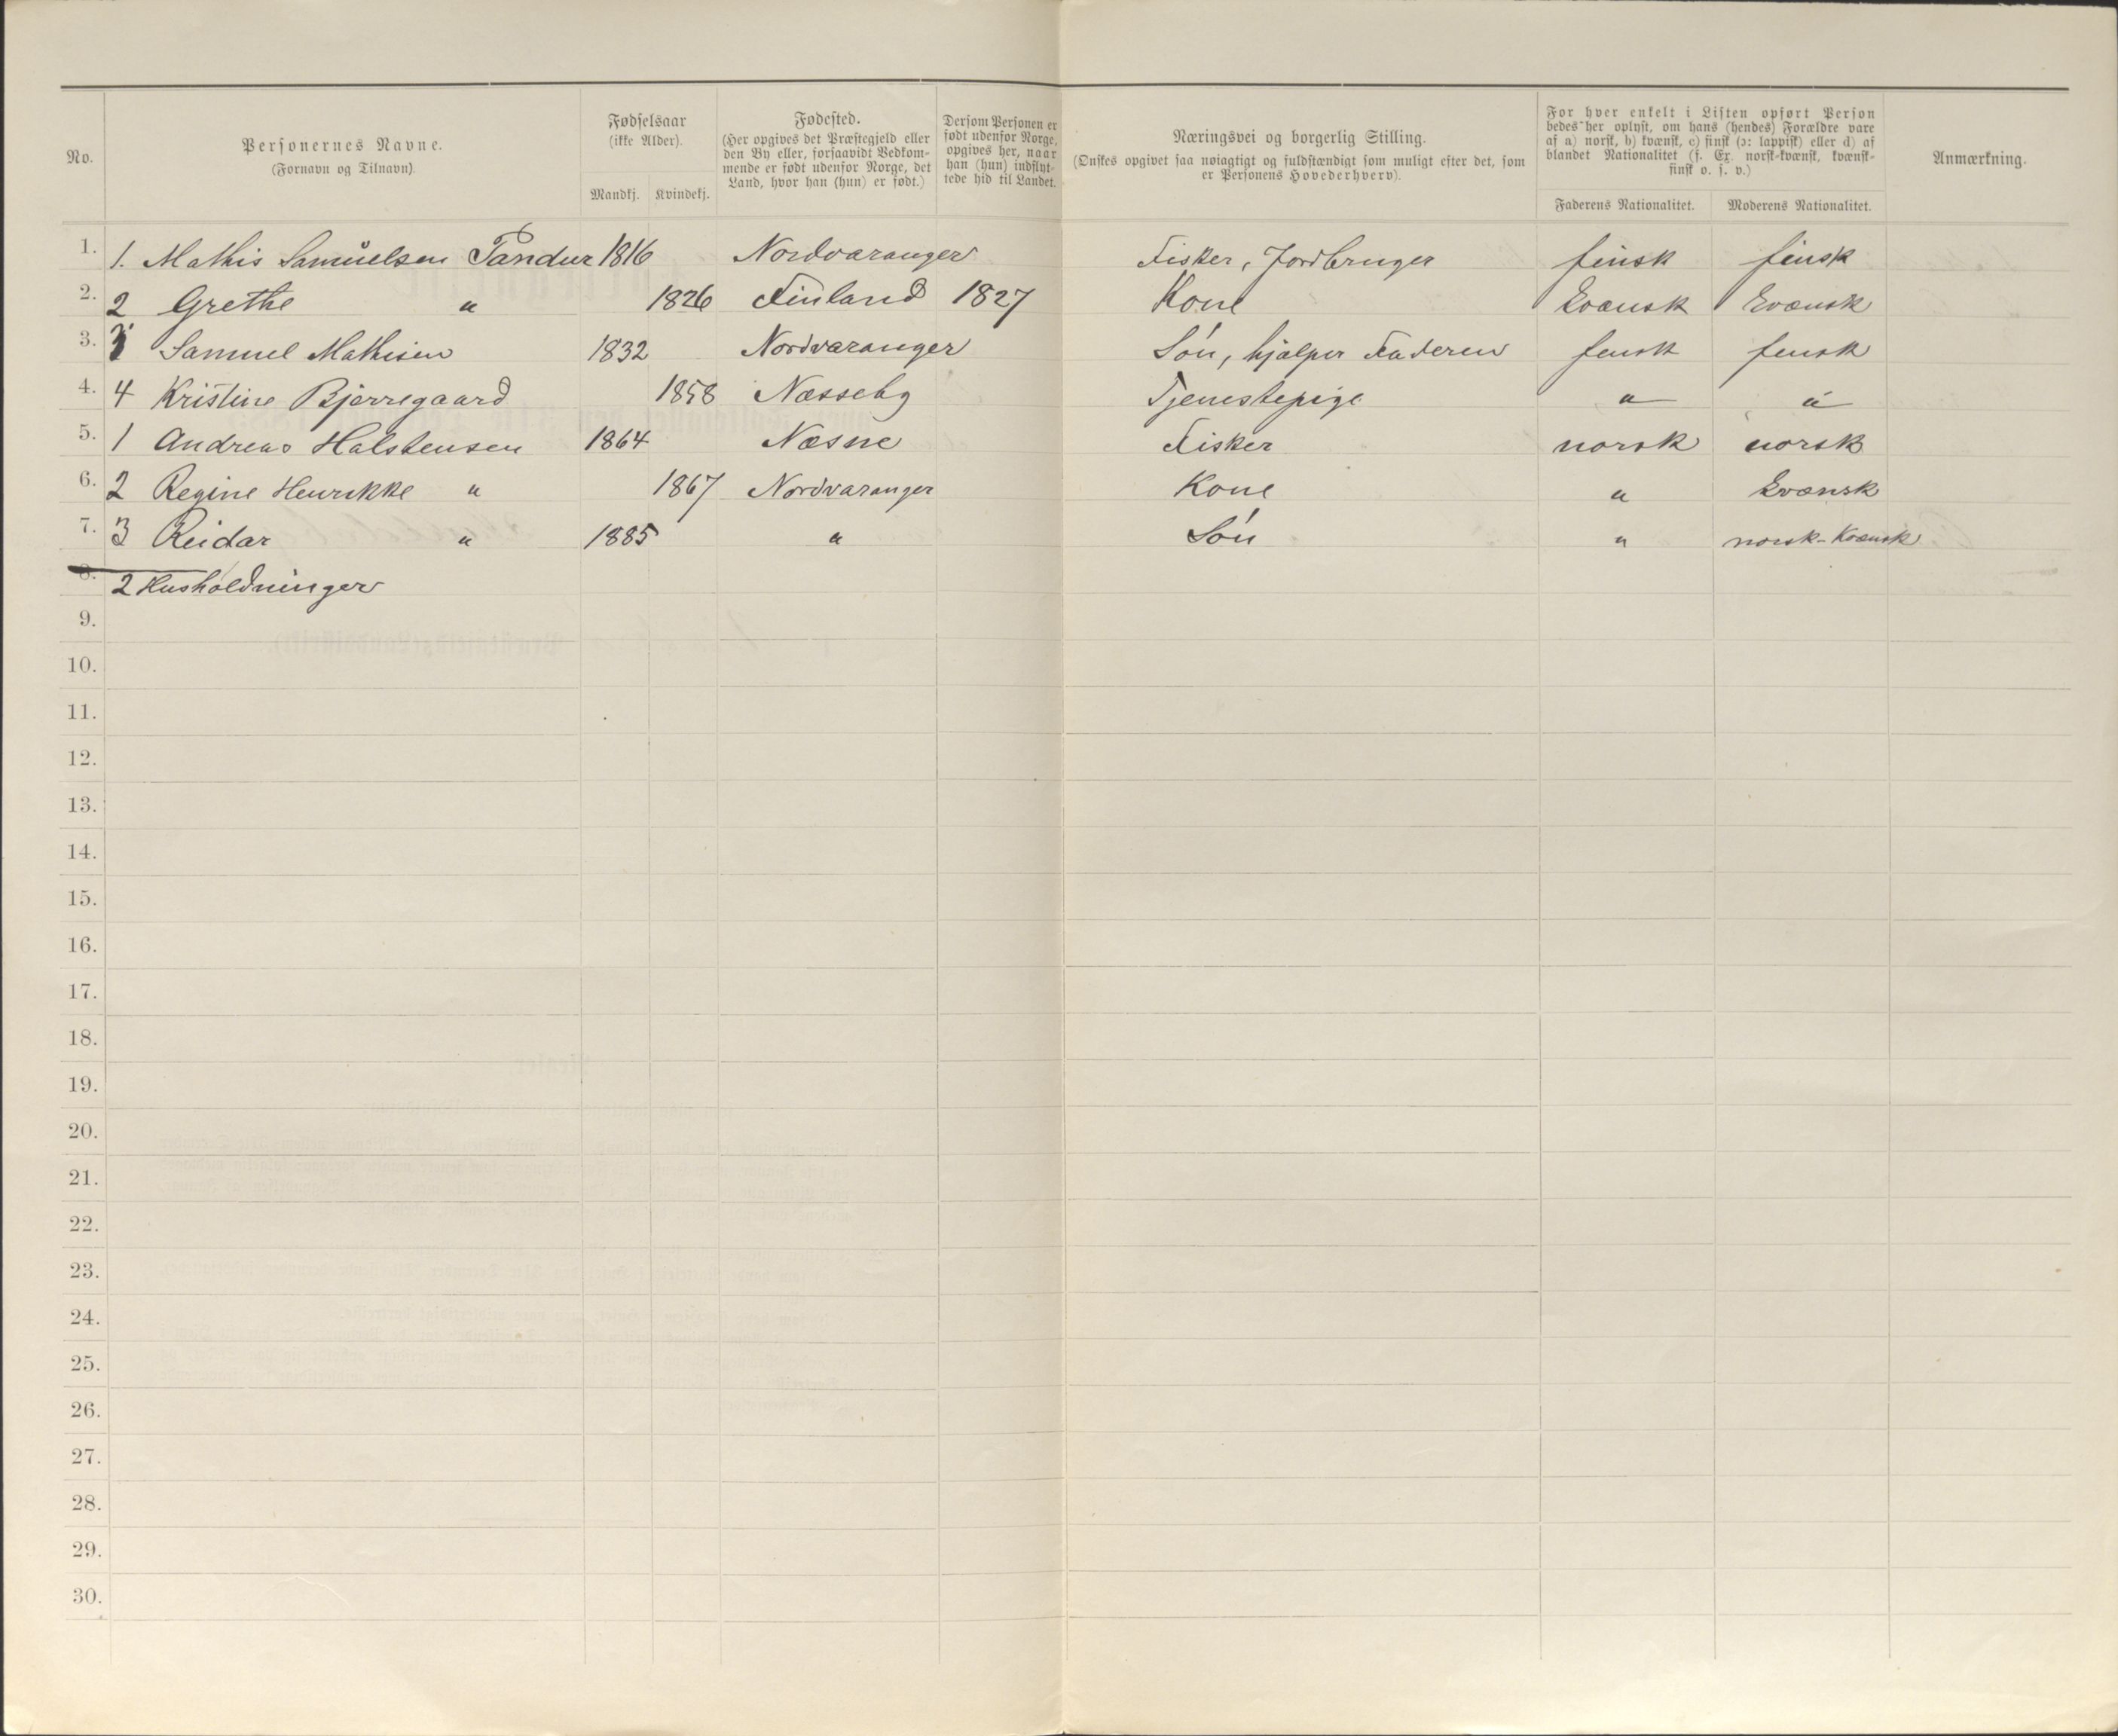 No.
Personernes Navne.
(Fornavn og Tilnavn)
Fødselsaar
(ikke Alder).
Mandkj. Kvindekj.
Fødested.
(Her opgives det Præstegjeld eller
den By eller, forsaavidt Vedkom-
mende er født udenfor Norge, det
Land, hvor han (hun) er født.)
Dersom Personen er
født udenfor Norge,
opgives her, naar
han (hun) indflyt-
tede hid til Landet.
Næringsvei og borgerlig Stilling.
(Ønskes opgivet saa nøiagtigt og fuldstændigt som muligt efter det, som
er Personens Hovederhverv).
For hver enkelt i Listen opført Person
bedes her oplyst, om hans (hendes) Forældre vare
af a) norsk, b) kvænsk, c) finsk (ɔ: lappisk) eller d) af
blandet Nationalitet (f. Ex. norsk-kvænsk, kvænsk-
finsk o. s. v.)
Faderens Nationalitet. Moderens Nationalitet.
Anmærkning.
1. 1. Mathis Samuelsen Tandur 1816 Nordvaranger Fisker, Jordbruger finsk finsk
2. 2 Grethe " 1826 Finland 1827 Kone kvænsk kvænsk
3. 3 Samuel Mathisen 1832 Nordvaranger Søn, hjælper Faderen finsk finsk
4. 4 Kristine Bjerregaard 1858 Næsseby Tjenestepige " "
5. 1 Andreas Halstensen 1864 Næsne Fisker norsk norsk
6. 2 Regine Henrikke " 1867 Nordvaranger Kone " kvænsk
7. 3 Reidar " 1885 " Søn " norsk-kvænsk
8. 2 Husholdninger
9.
10.
11.
12.
13.
14.
15.
16.
17.
18.
19.
20.
21.
22.
23.
24.
25.
26.
27.
28.
29.
30.